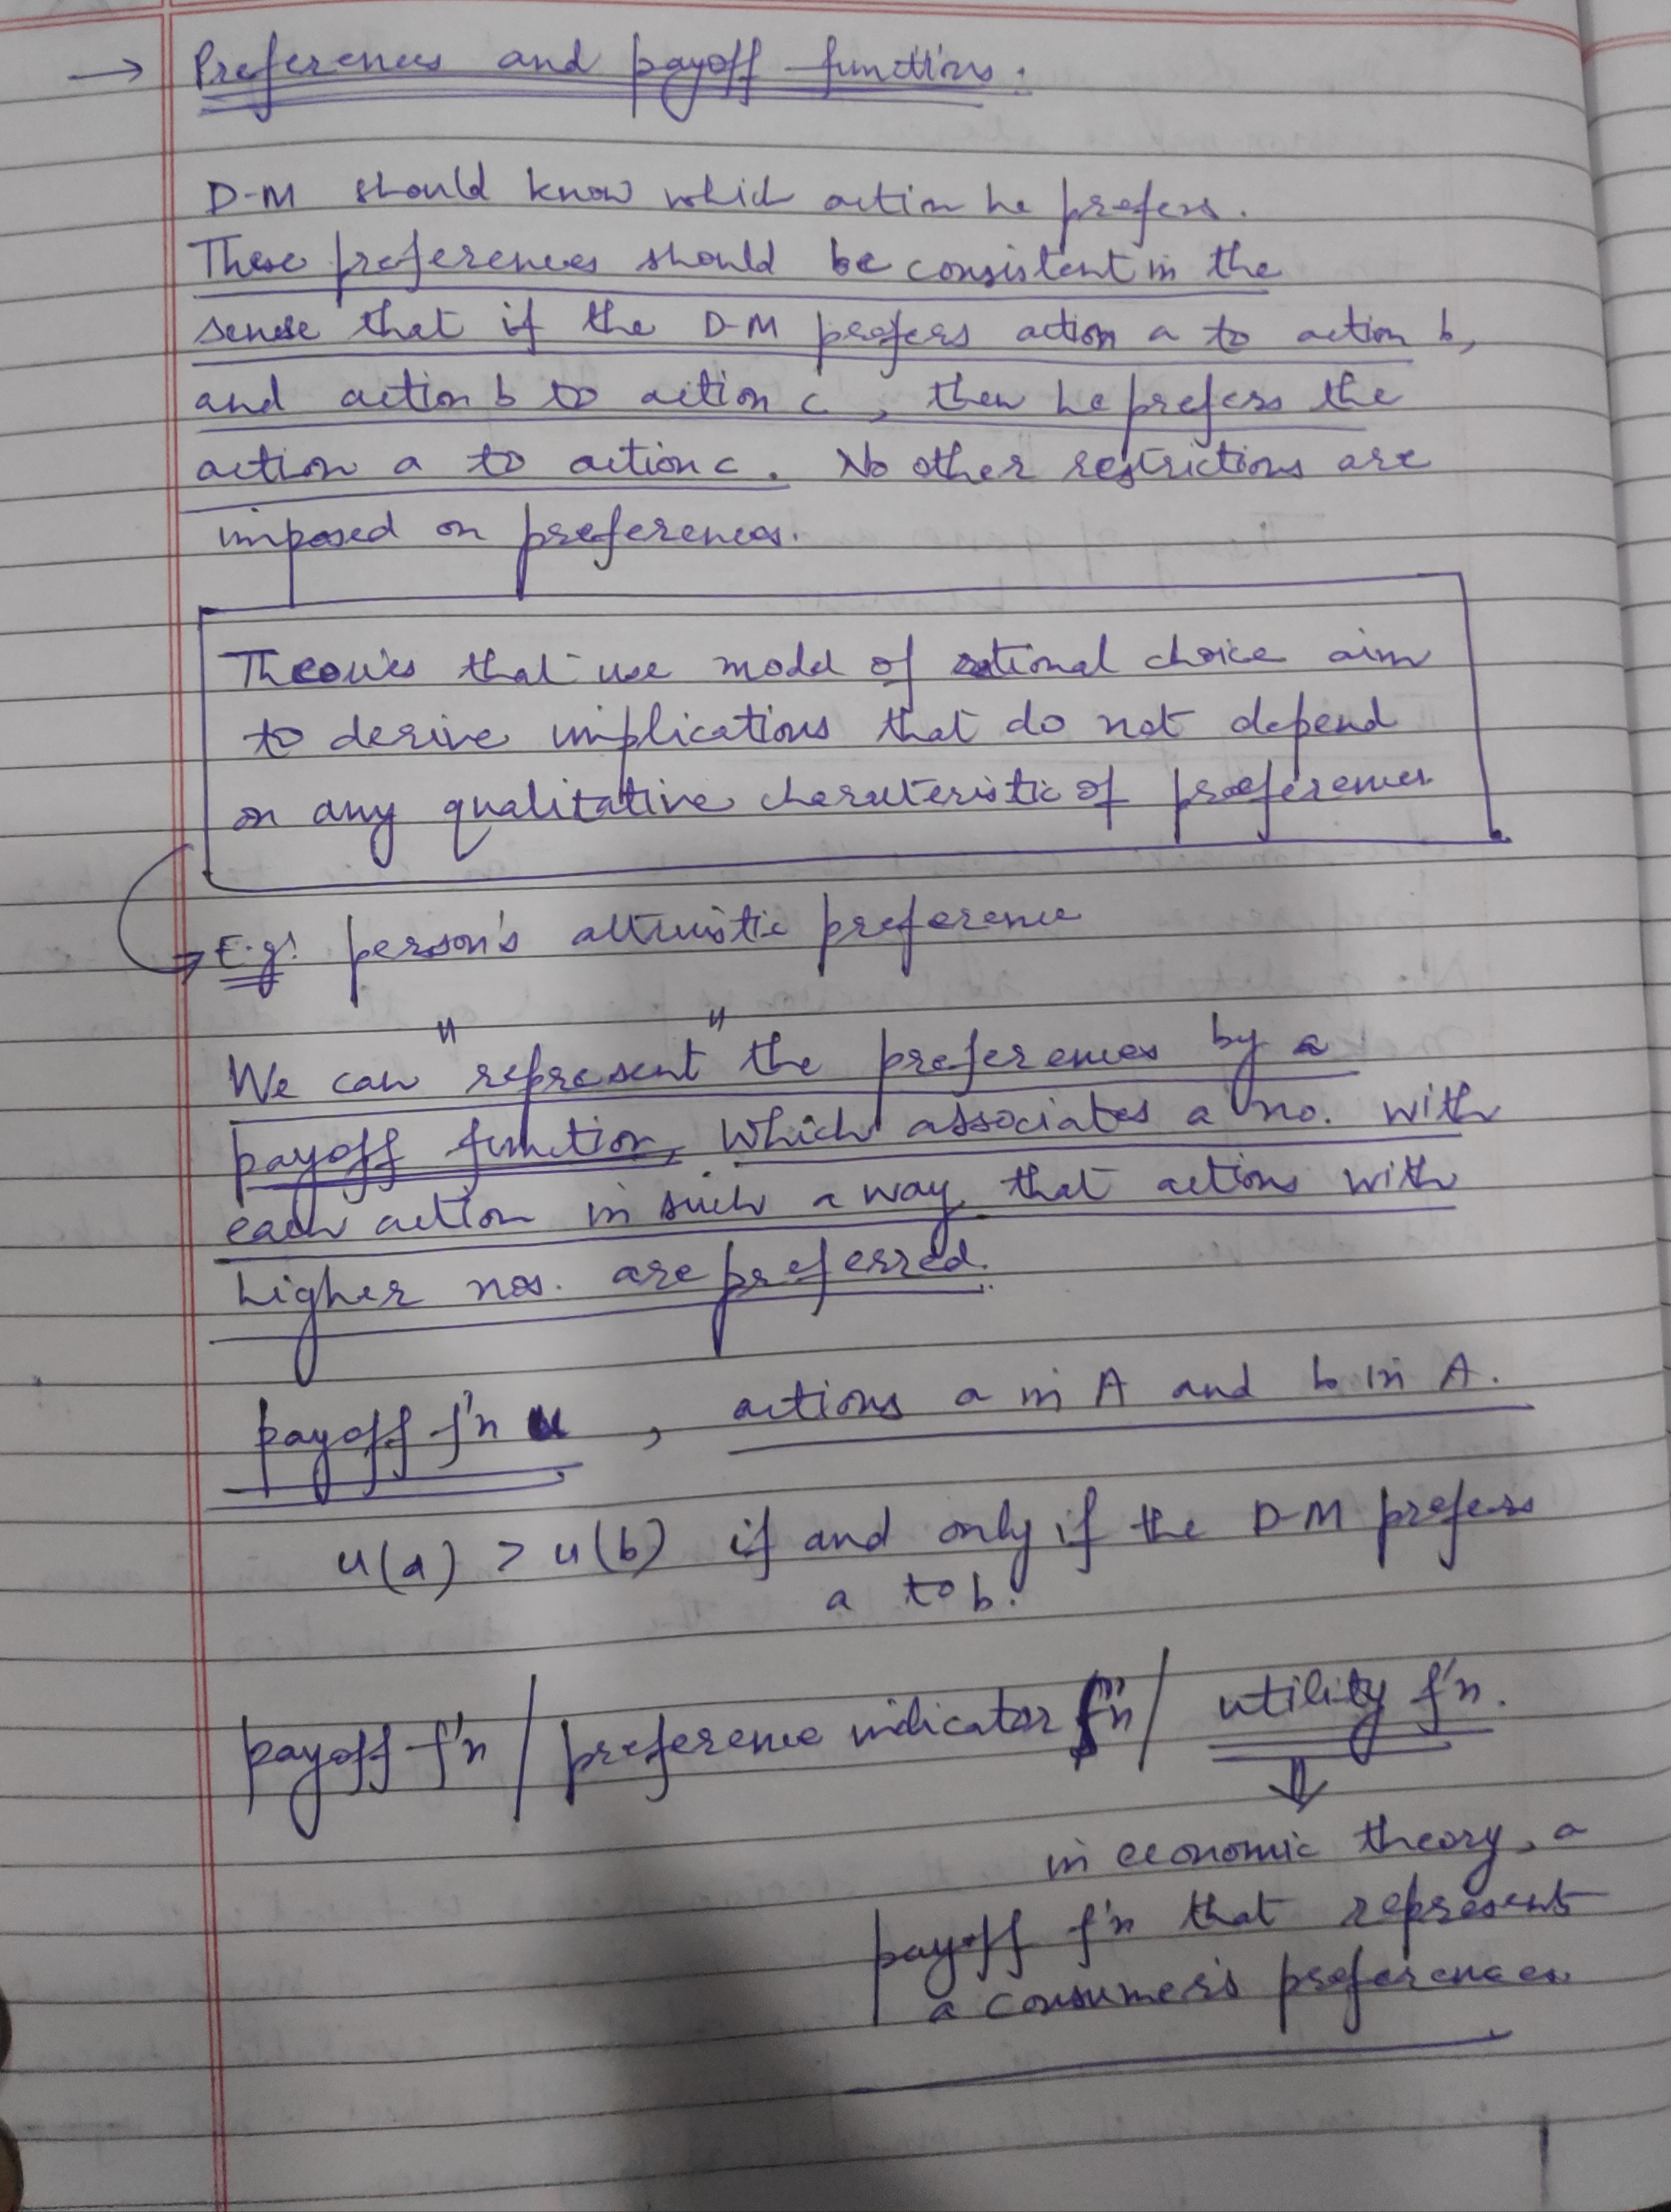 → Preferences and payoff functions.
D-M should know which action he prefers.
These preferences should be consistent in the
sense that if the D-M prefers action a to action b,
and action b to action c, then he prefers the
action a to action c. No other restrictions are
imposed on preferences.
Theories that use model of rational choice aim
to derive implications that do not depend
on any qualitative charateristic of preferences
E.g: person's altruistic preference
We can "represent" the preferences by a
payoff function, which associates a no. with
each action in such a way that actions with
higher nos. are preferred.
payoff f'n u, actions a in A and b in A.
u(a) > u(b) if and only if the D-M prefers
a to b.
payoff f'n / preference indicator f'n / utility f'n.
⇓
in economic theory, a
payoff f'n that represents
a consumer's preferences